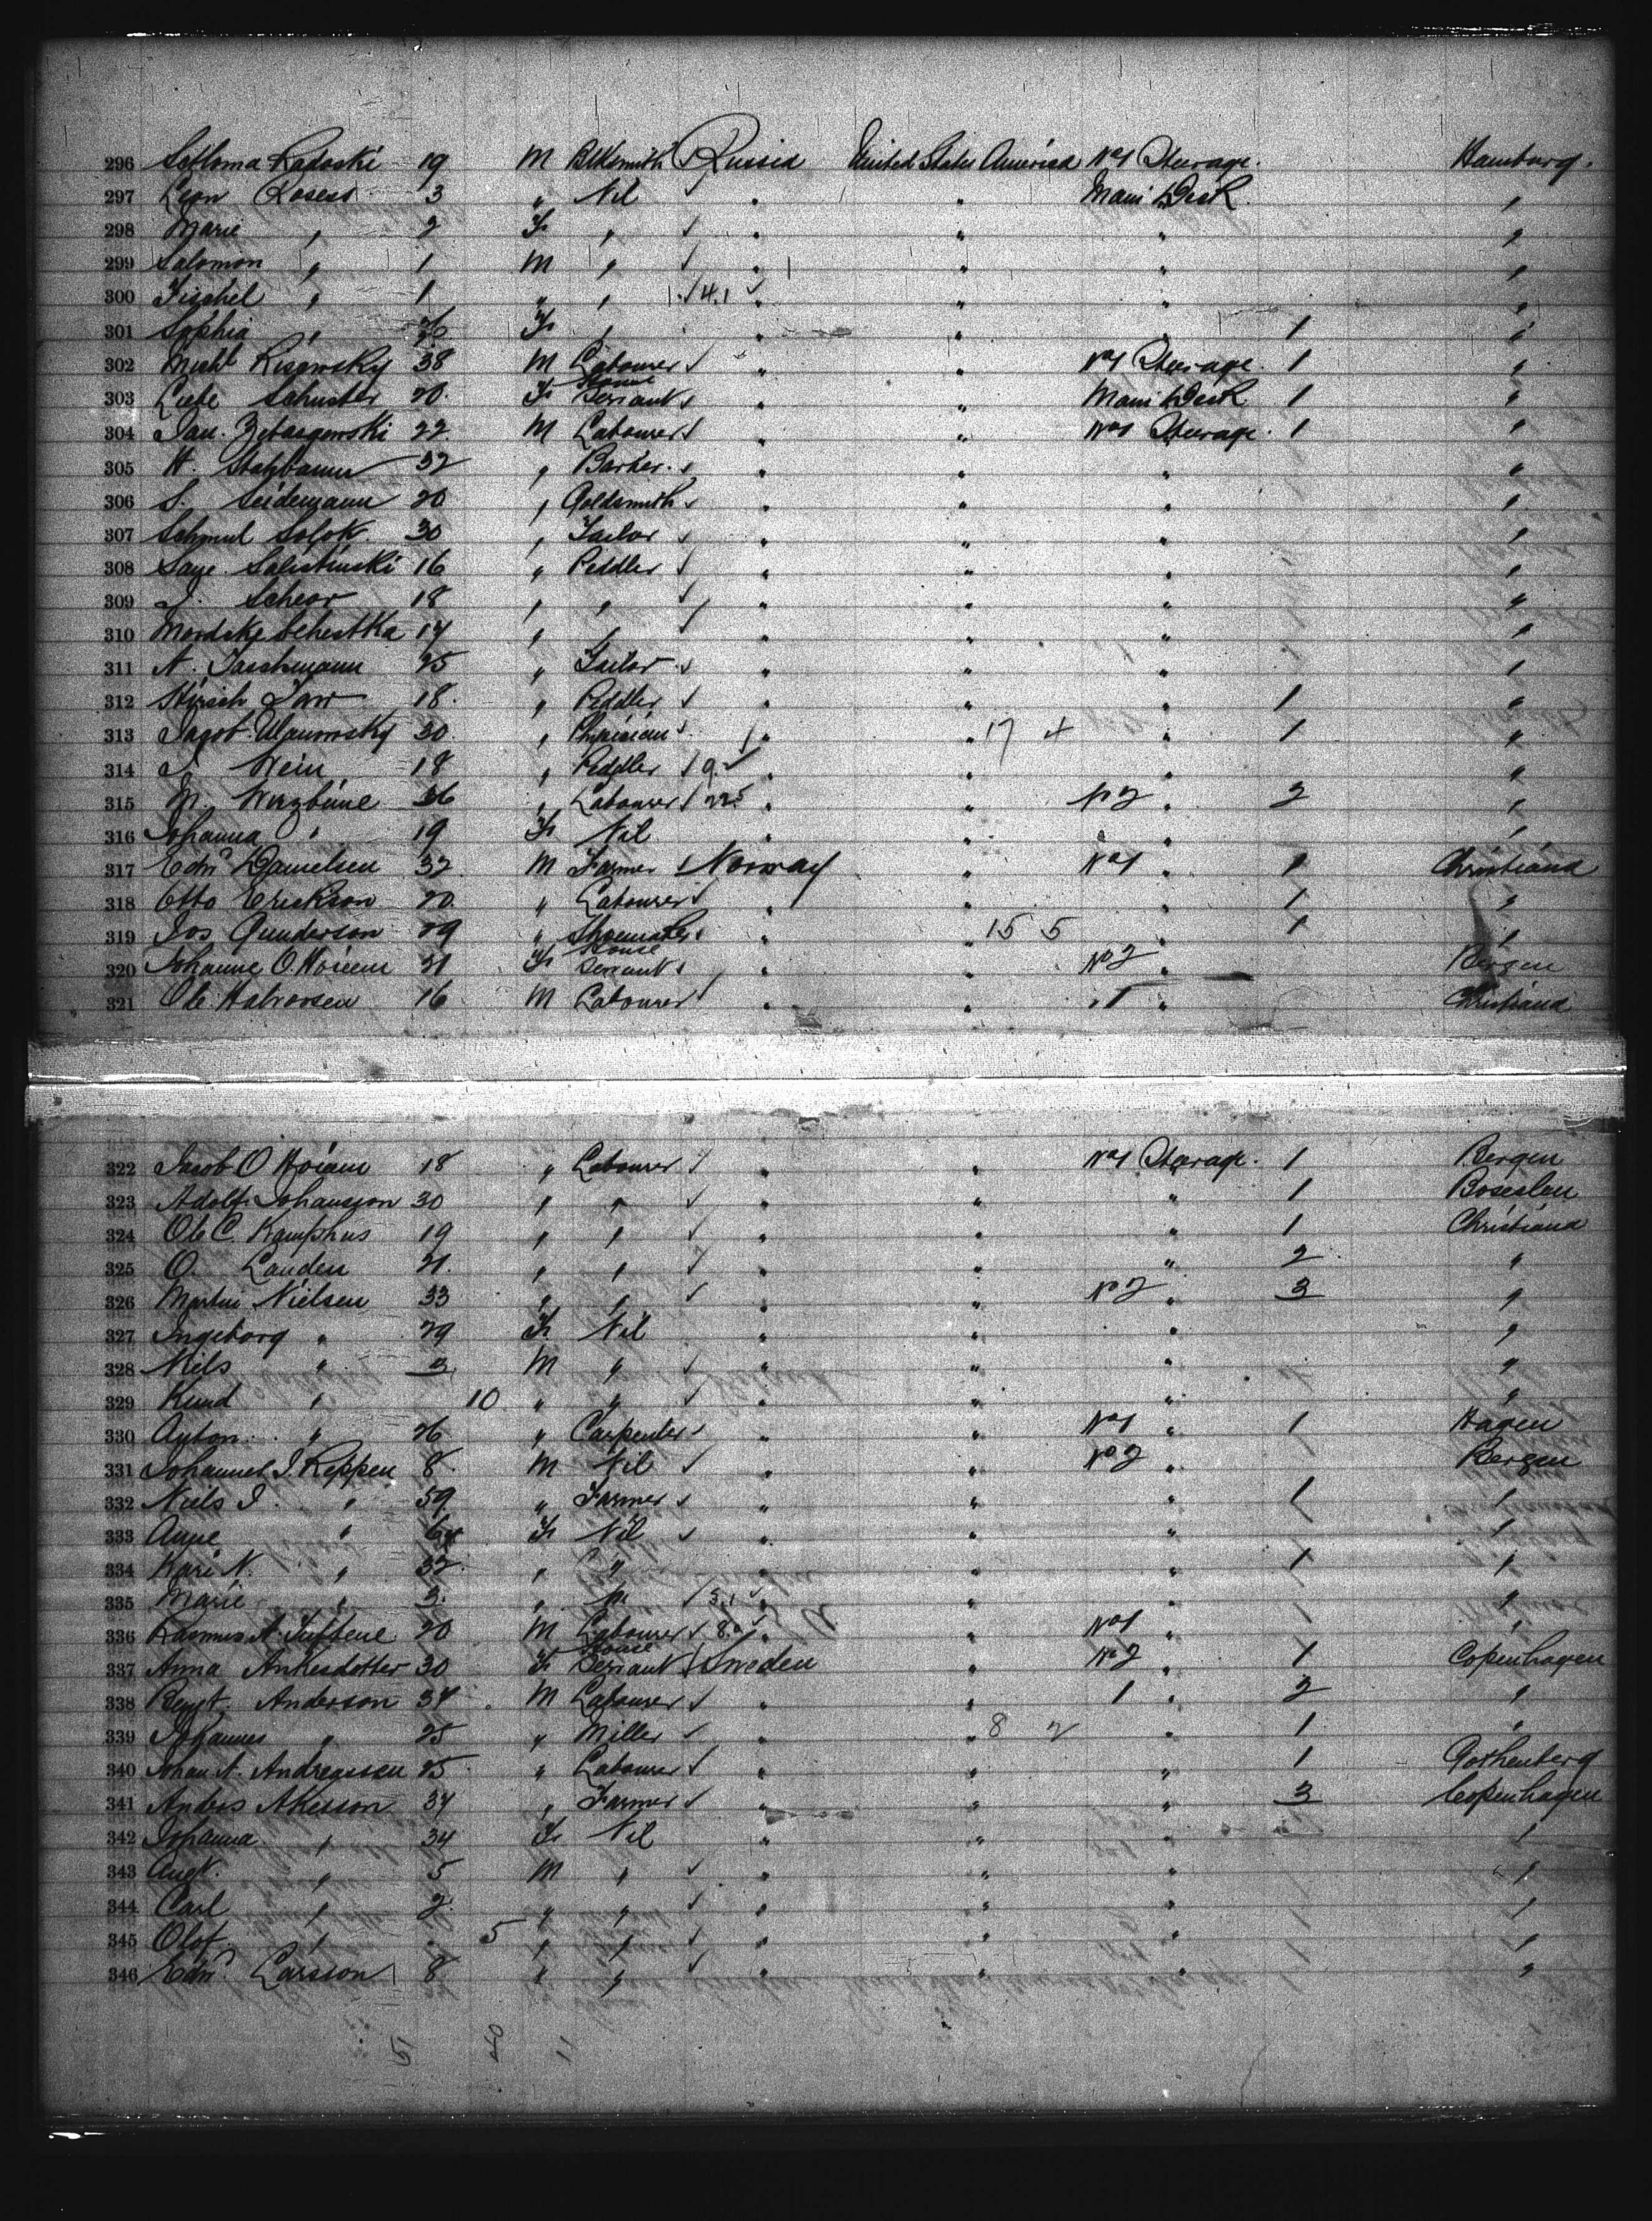 296 Schloma Radoski 19 M Blksmith Russia United States America No 1 Steerage. Hamburg.
297 Leon Rosess 3 " Nil " " Main Deck "
298 Marie " 2 F " " " " "
299 Salomon " 1 M " " " " "
300 Fischel " 1 " " 4.1 " " " "
301 Sophia " F " " " " 1 "
302 Michl Lisowsky 38 M Labourer " " No 1 Steerage. 1 "
303 Liebe Schuster 20. F House Servant " " Main Deck 1 "
304 Jan. 22 M Labourer " " No 1 Steerage. 1 "
305 H. Stahbaum 32 " Barber. " " " "
306 S. Seidemann 20 " Goldsmith " " " "
307 Schmul Solok. 30 " Tailor " " " "
308 Salistinski 16 " Peddler " " " "
309 J. Scheor 18 " " " " " "
310 Mordske Schestka 14 " " " " " "
311 N. Taschmann 25 " Tailor " " " "
312 Hirsch 18. " Peddler " " " 1 "
313 Jagob Ulanowsky 30. " " " 17 4 " 1 "
314 J Wein 18 " Peddler 9 " " " "
315 M. Wirzbine 36 " Labourer 22.5 " " No 2 " 2 "
316 Johanna " 19 F Nil " " " "
317 Edw Danielsen 32 M Farmer Norway " No 1 " 1 Christiana
318 Otto Erickson 20. " Labourer " " " 1 "
319 Jos Gunderson 29 " Shoemaker " " 15 5 " 1 "
320 Johanne O. Hoiem 21 F House Servant " " No 2 " Bergen
321 Ole Halvorsen 16 M Labourer " " " 1 " Christiana
322 Jacob O Hoiem 18 " Labourer " " No 1 Steerage. 1 Bergen
323 Adolf Johansson 30 " " " " " 1
324 Ole C. Kamphus 19 " " " " " 1 Christiana
325 O. Landen 21. " " " " " 2 "
326 Martin Nielsen 33 " " " " No 2 " 3 "
327 Ingeborg " 29 F Nil " " " "
328 Niels " 3 M " " " " "
329 Knud " 10 " " " " " "
330 Anton " 26 " Carpenter " " No 1 " 1 Hagen
331 Johannes I. Reppen 8. M Nil " " No 2 " Bergen
332 Niels I. " 59. " Farmer " " " 1 "
333 Anne " F Nil " " " "
334 Kari N. " 32. " " " " " 1 "
335 Marie " 3. " " 3.1 " " " "
336 Rasmus A. Tuftene 20 M Labourer 8. " " No 1 "
337 Anna Ankesdotter 30 F House Servant Sweden " No 2 " 1 Copenhagen
338 Bengt. Anderson 34 M Labourer " " 1 " 2 "
339 Johannes " 25 " Miller " " 8 2 " 1 "
340 Johan A. Andreassen 25 " Labourer " " " 1 Gothenberg
341 Anders Akesson 34 " Farmer " " " 3 Copenhagen
342 Johanna " 34 F Nil " " " "
343 Augt. " 5 M " " " " "
344 Carl " 2. " " " " " "
345 Olof " 5 " " " " " "
346 Edw. Larsson 8 " " " " " "